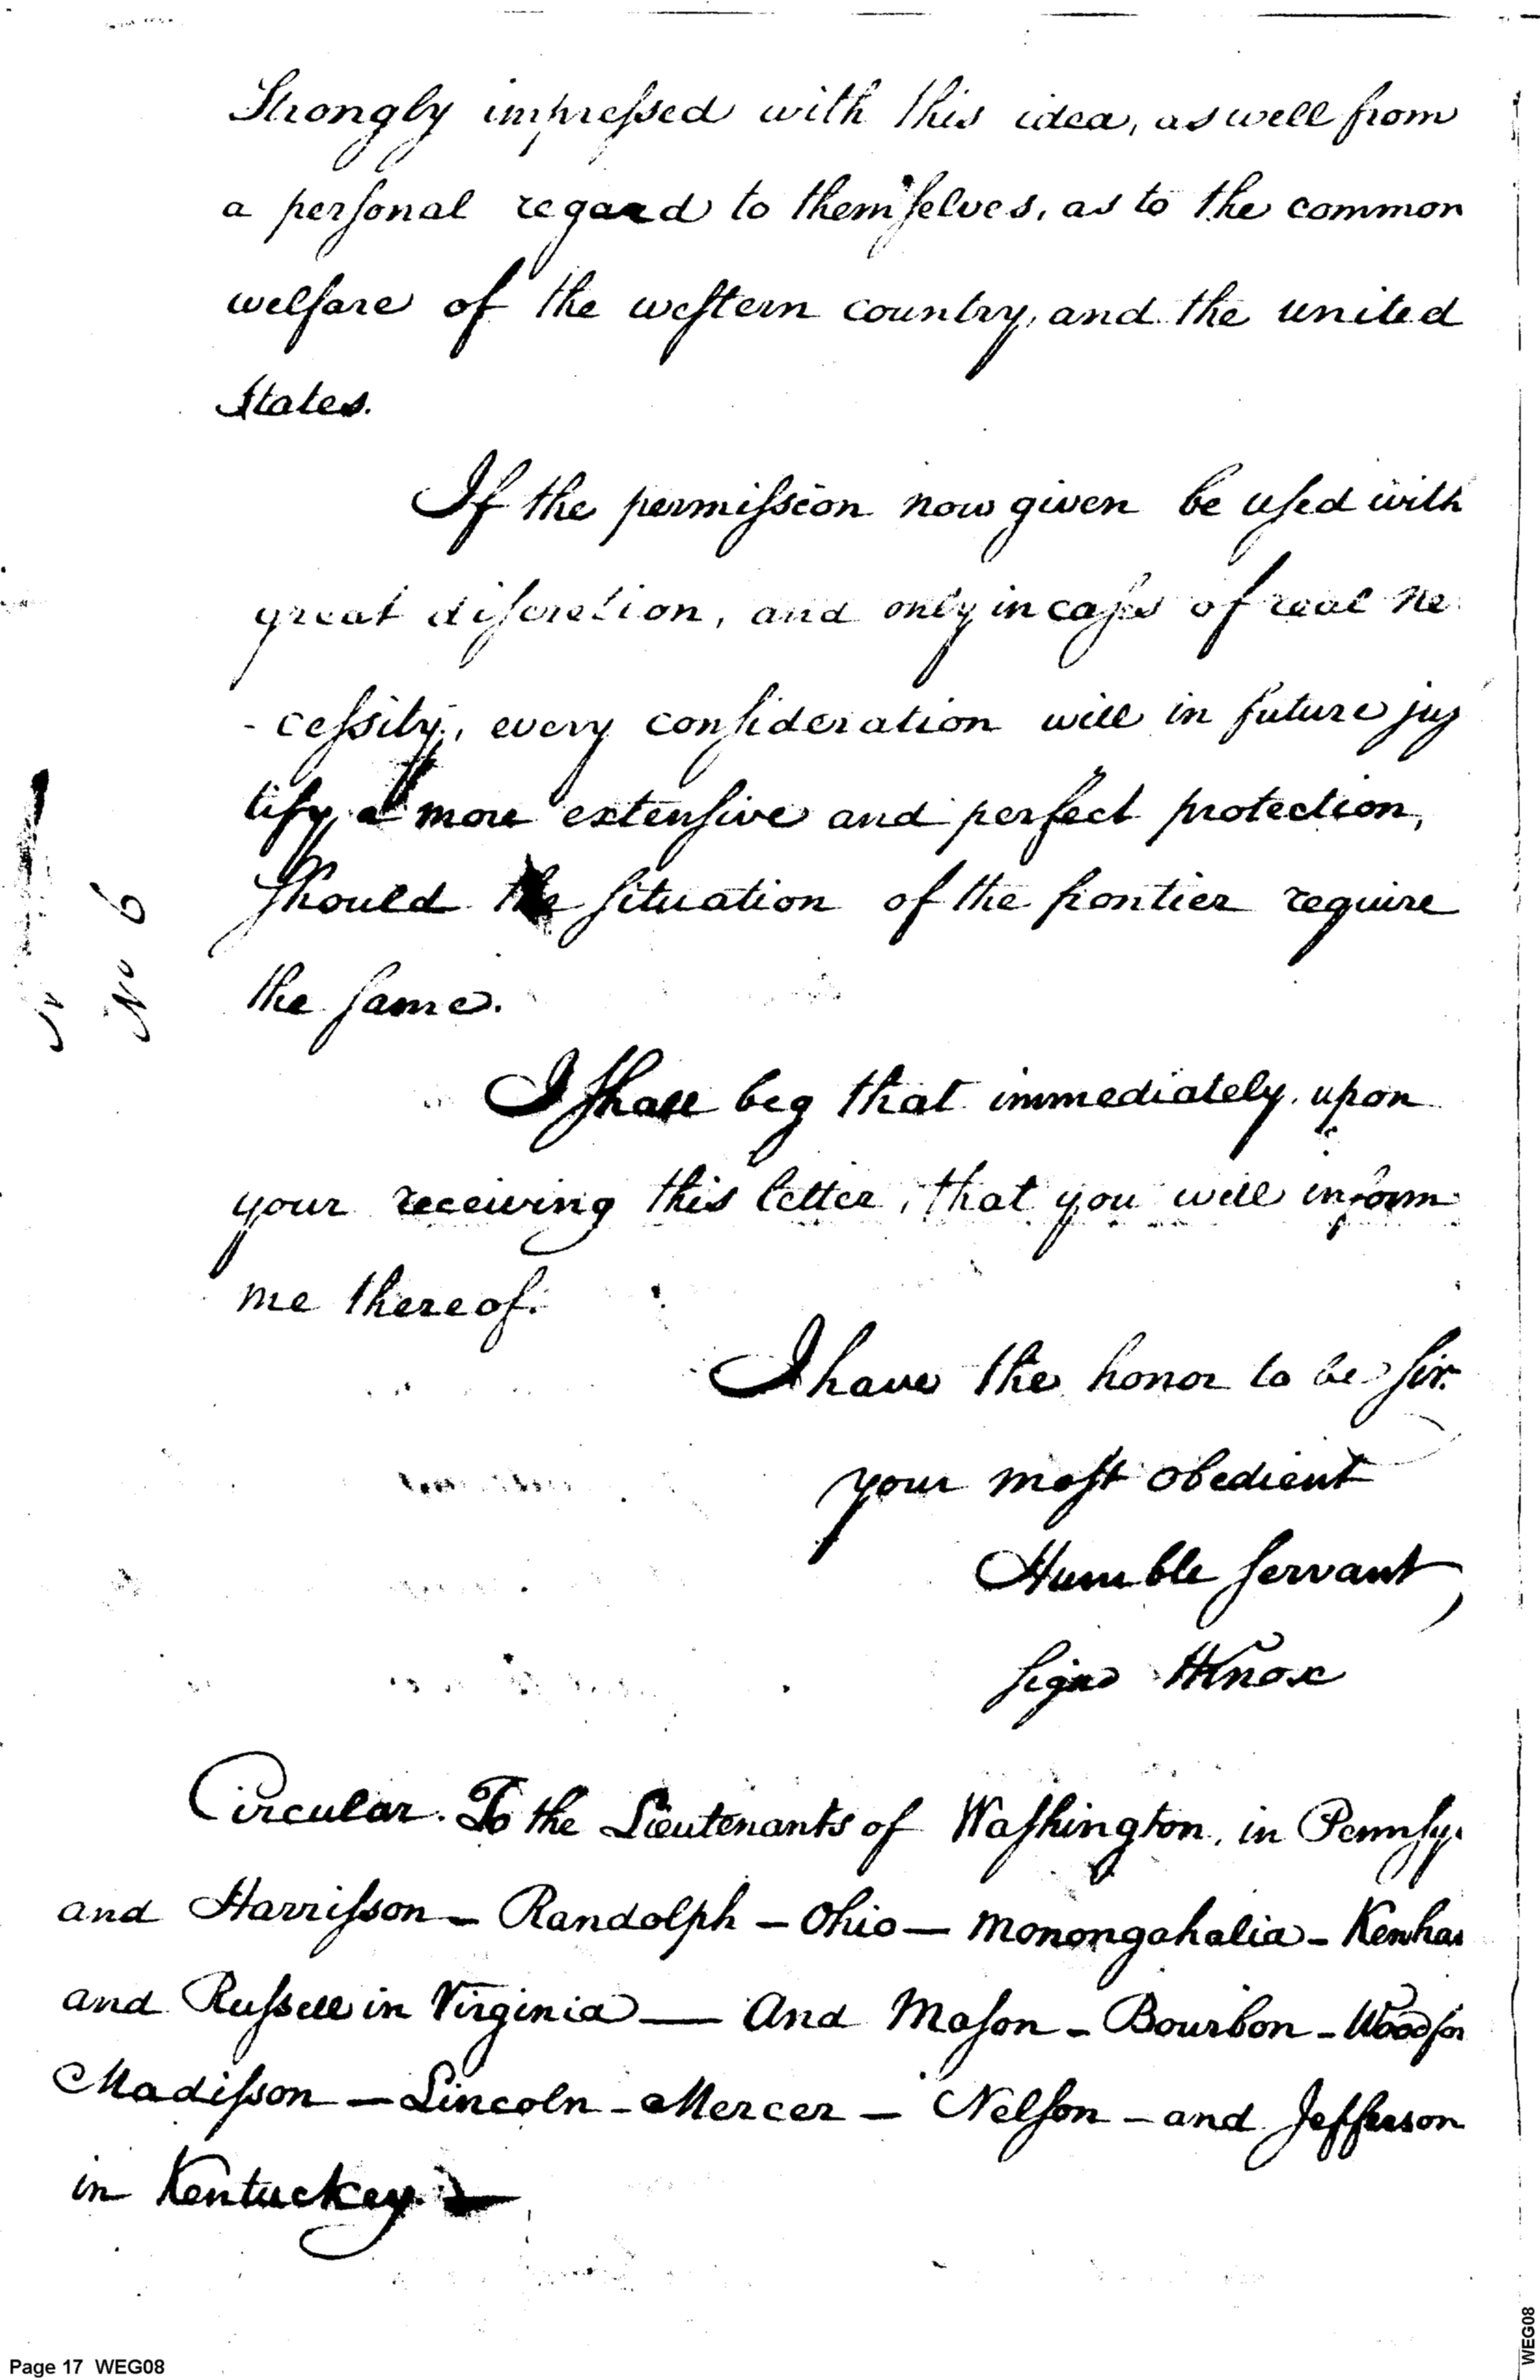 Strongly impressed with this idea, as well from
a personal regard to themselves, as to the common
welfare of the western country, and the united
States.
If the permission now given be used with
great discretion, and only in cases of real ne
- cessity, every consideration will in future jus
tify a more extensive and perfect protection,
should the situation of the frontier require
the same.
No 6
I shall beg that immediately upon
your receiving this letter, that you will inform
me thereof.
I have the honor to be Sir.
your most obedient
Humble servant,
Signd HKnox
Circular. To the Lieutenants of Washington, in Pennsy.
and Harrisson - Randolph - Ohio - Monongahalia - Kenhaw
and Russell in Virginia - And Mason - Bourbon - Woodfor
Madisson - Lincoln - Mercer - Nelson - and Jefferson
in Kentuckey.
Page 17 WEG08
WEG08